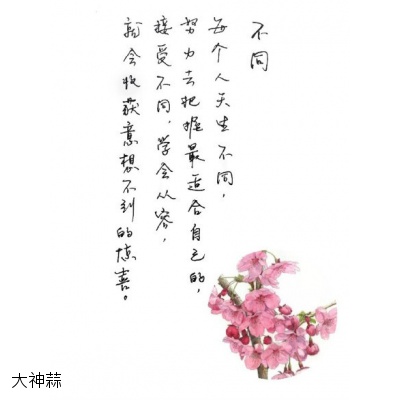 不同
每个人天生不同，
努力去把握最适合自己的，
接受不同，学会从容，
就会收获意想不到的惊喜。
大神蒜